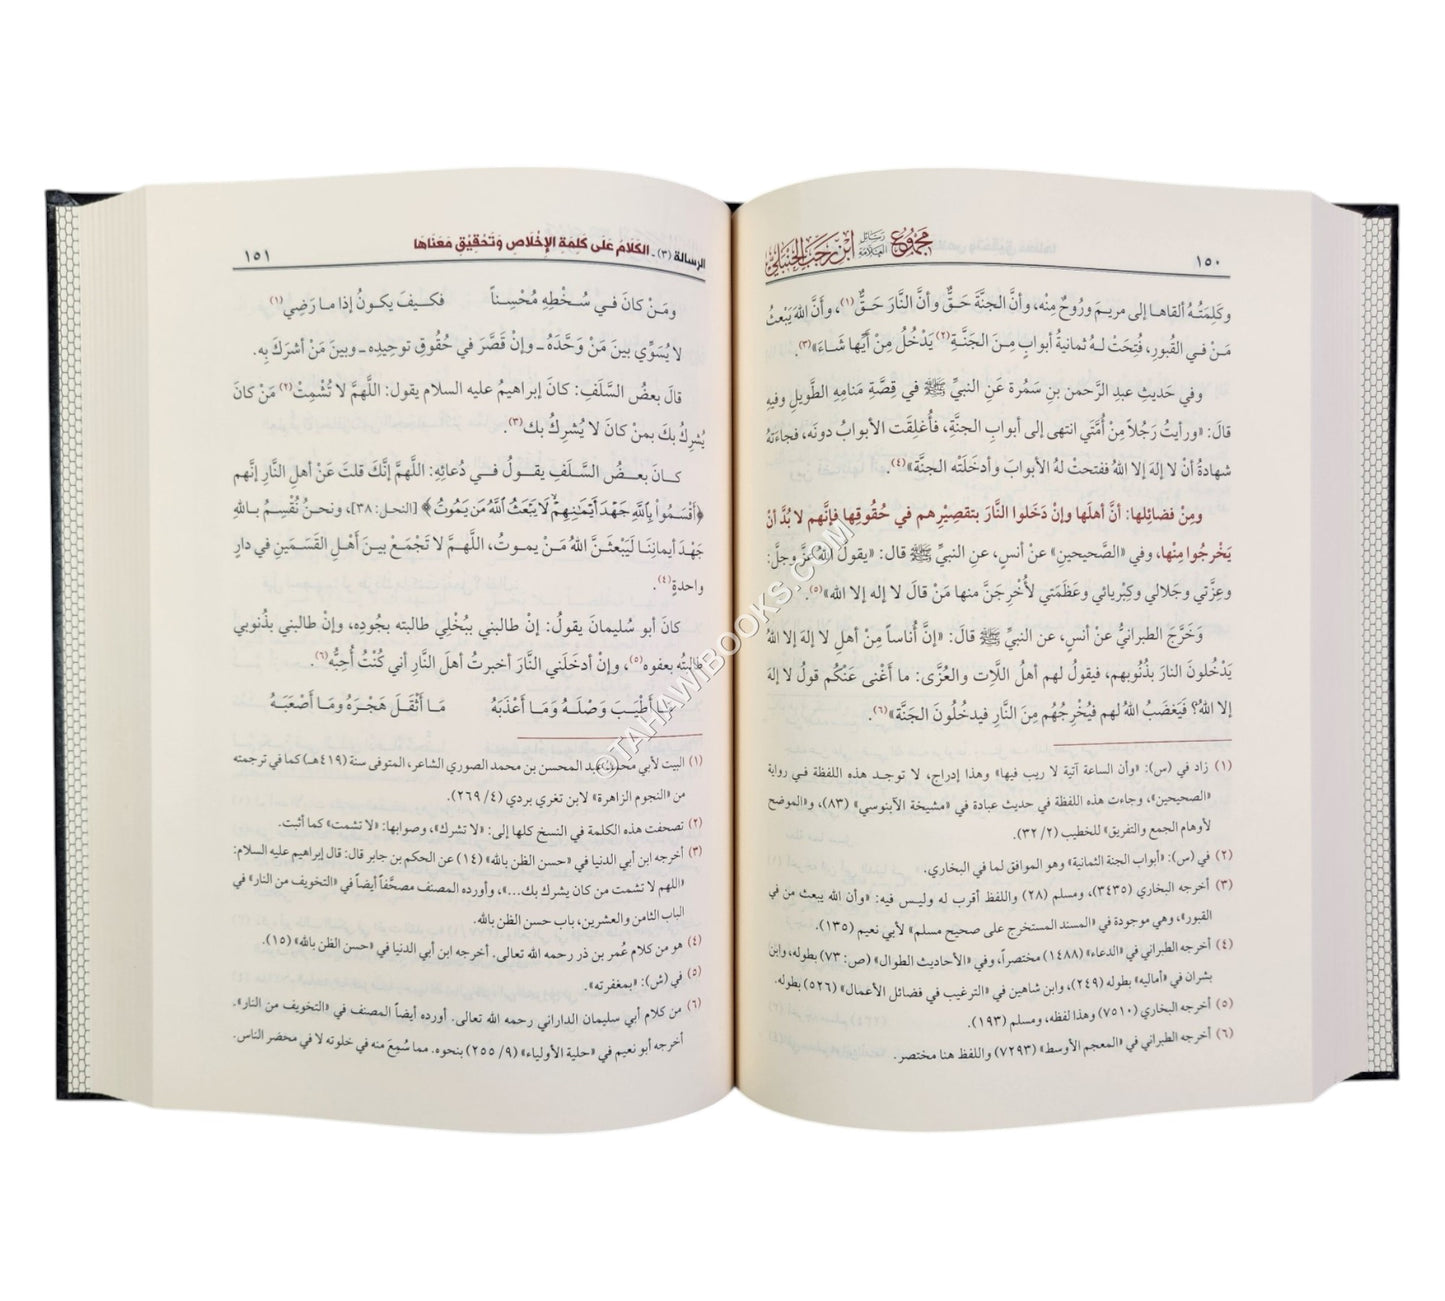 ١٥٠ مجموع رسائل العلامة ابن رجب الحنبلي
وكَلِمَتُهُ ألقاها إلى مريمَ ورُوحٌ مِنْه، وأنَّ الجنَّةَ حَقٌّ وأنَّ النَّارَ حَقٌّ(١)، وأَنَّ اللهَ يَبْعثُ
مَنْ في القُبورِ، فُتِحَتْ لـهُ ثمانيةُ أبوابٍ مِنَ الجَنَّـةِ(٢) يَدْخُلُ مِنْ أيِّها شَـاءَ»(٣).
وفي حَديثِ عبدِ الرَّحمن بنِ سَمُرة عَنِ النبيِّ ﷺ في قِصَّةِ مَنامِهِ الطَّويلِ وفيهِ
قالَ: «ورأيتُ رَجُلاً مِنْ أُمَّتي انتهى إلى أبوابِ الجنَّةِ، فأُغلِقَت الأبوابُ دونَه، فجاءَتهُ
شهادةُ أنْ لا إلهَ إلا اللهُ ففتحتْ لهُ الأبوابَ وأدخَلَتْه الجنَّة»(٤).
ومِنْ فضائلِها: أنَّ أهلَها وإنْ دَخَلوا النَّارَ بتقصِيْرِهم في حُقُوقِها فإنَّهم لا بُدَّ أنْ
يَخْرجُوا مِنْها، وفي «الصَّحيحين» عنْ أنسٍ، عنِ النبيِّ ﷺ قال: «يقولُ اللهُ عزَّ وجلَّ:
وعِزَّتي وجَلالي وكِبْريائي وعَظَمَتي لأُخْرِجَنَّ منها مَنْ قالَ لا إله إلا الله»(٥).
وَخَرَّجَ الطبرانيُّ عنْ أنسٍ، عن النبيِّ ﷺ قالَ: «إنَّ أُناساً مِنْ أهلِ لا إلهَ إلا اللهُ
يَدْخُلونَ النارَ بذُنُوبهم، فيقولُ لهم أهلُ اللَّات والعُزَّى: ما أَغْنى عَنْكُم قولُ لا إلهَ
إلا اللهُ؟ فَيَغضَبُ اللهُ لهم فيُخْرِجُهُم مِنَ النَّارِ فيدخُلُونَ الجَنَّة»(٦).
(١) زاد في (س): «وأن الساعة آتية لا ريب فيها» وهذا إدراج، لا توجد هذه اللفظة في رواية
«الصحيحين»، وجاءت هذه اللفظة في حديث عبادة في «مشيخة الآبنوسي» (٨٣)، و«الموضح
لأوهام الجمع والتفريق» للخطيب (٢/ ٣٢).
(٢) في (س): «أبواب الجنة الثمانية» وهو الموافق لما في البخاري.
(٣) أخرجه البخاري (٣٤٣٥)، ومسلم (٢٨) واللفظ أقرب له وليس فيه: «وأن الله يبعث من في
القبور»، وهي موجودة في «المسند المستخرج على صحيح مسلم» لأبي نعيم (١٣٥).
(٤) أخرجه الطبراني في «الدعاء» (١٤٨٨) مختصراً، وفي «الأحاديث الطوال» (ص: ٧٣) بطوله، وابن
بشران في «أماليه» بطوله (٢٤٩)، وابن شاهين في «الترغيب في فضائل الأعمال» (٥٢٦) بطوله.
(٥) أخرجه البخاري (٧٥١٠) وهذا لفظه، ومسلم (١٩٣).
(٦) أخرجه الطبراني في «المعجم الأوسط» (٧٢٩٣) واللفظ هنا مختصر.
الرسالة (٣) ـ الكَلَامُ عَلَى كَلِمَةِ الإِخْلَاصِ وَتَحْقِيْقِ مَعْنَاهَا ١٥١
ومَـنْ كانَ فـي سُـخْطِهِ مُحْسِـناً فكـيفَ يكـونُ إذا مـا رَضِي(١)
لا يُسَوِّي بينَ مَنْ وَحَّدَهُ ـ وإنْ قَصَّرَ في حُقُوقِ توحيدِه ـ وبينَ مَنْ أشرَكَ بِه.
قالَ بعضُ السَّلَفِ: كانَ إبراهيمُ عليه السلام يقول: اللَّهمَّ لا تُشْمِتْ(٢) مَنْ كانَ
يُشرِكُ بكَ بمنْ كانَ لا يُشرِكُ بك(٣).
كـانَ بعـضُ السَّـلَفِ يقـولُ فـي دُعائِهِ: اللَّهمَّ إنَّكَ قلتَ عَنْ أهلِ النَّارِ إنَّهم
﴿أَقْسَمُواْ بِاللَّهِ جَهْدَ أَيْمَانِهِمْ لَا يَبْعَثُ اللَّهُ مَن يَمُوتُ﴾ [النحل: ٣٨]، ونحـنُ نُقْسِمُ بـاللهِ
جَهْدَ أيمانِنَا لَيَبْعثَـنَّ اللهُ مَنْ يموتُ، اللَّهمَّ لا تَجْمَعْ بينَ أهْلِ القَسَمَينِ في دارٍ
واحدةٍ(٤).
كانَ أبو سُليمانَ يقولُ: إنْ طالبَني ببُخْلِي طالبته بجُودِه، وإنْ طالبَني بذُنوبي
طالبتُه بعفوِه(٥)، وإنْ أدخَلَني النَّارَ أخبرتُ أهلَ النَّارِ أني كُنْتُ أُحِبُّه(٦).
مَـا أَطْيَـبَ وَصْلَـهُ وَمَـا أَعْذَبَهُ مَـا أَثْقَـلَ هَجْـرَهُ ومَـا أَصْعَبَـهُ
(١) البيت لأبي محمد عبد المحسن بن محمد الصوري الشاعر، المتوفى سنة (٤١٩هـ) كما في ترجمته
من «النجوم الزاهرة» لابن تغري بردي (٤/ ٢٦٩).
(٢) تصحفت هذه الكلمة في النسخ كلها إلى: «لا تشرك»، وصوابها: «لا تشمت» كما أثبت.
(٣) أخرجه ابن أبي الدنيا في «حسن الظن بالله» (١٤) عن الحكم بن جابر قال: قال إبراهيم عليه السلام:
«اللهم لا تشمت من كان يشرك بك...»، وأورده المصنف مصحَّفاً أيضاً في «التخويف من النار» في
الباب الثامن والعشرين، باب حسن الظن بالله.
(٤) هو من كلام عُمر بن ذر رحمه الله تعالى. أخرجه ابن أبي الدنيا في «حسن الظن بالله» (١٥).
(٥) في (ش): «بمغفرته».
(٦) من كلام أبي سليمان الداراني رحمه الله تعالى. أورده أيضاً المصنف في «التخويف من النار».
أخرجه أبو نعيم في «حلية الأولياء» (٩/ ٢٥٥) بنحوه. مما سُمِعَ منه في خلوته لا في محضر الناس.
©TAHAWIBOOKS.COM